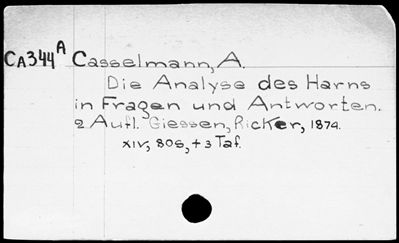 CA344A Casselmann, A.
Die Analyse des Harns
in Fragen und Antworten.
2 Aufl. Giessen, Ricker, 1874.
XIV, 80S, + 3 Taf.